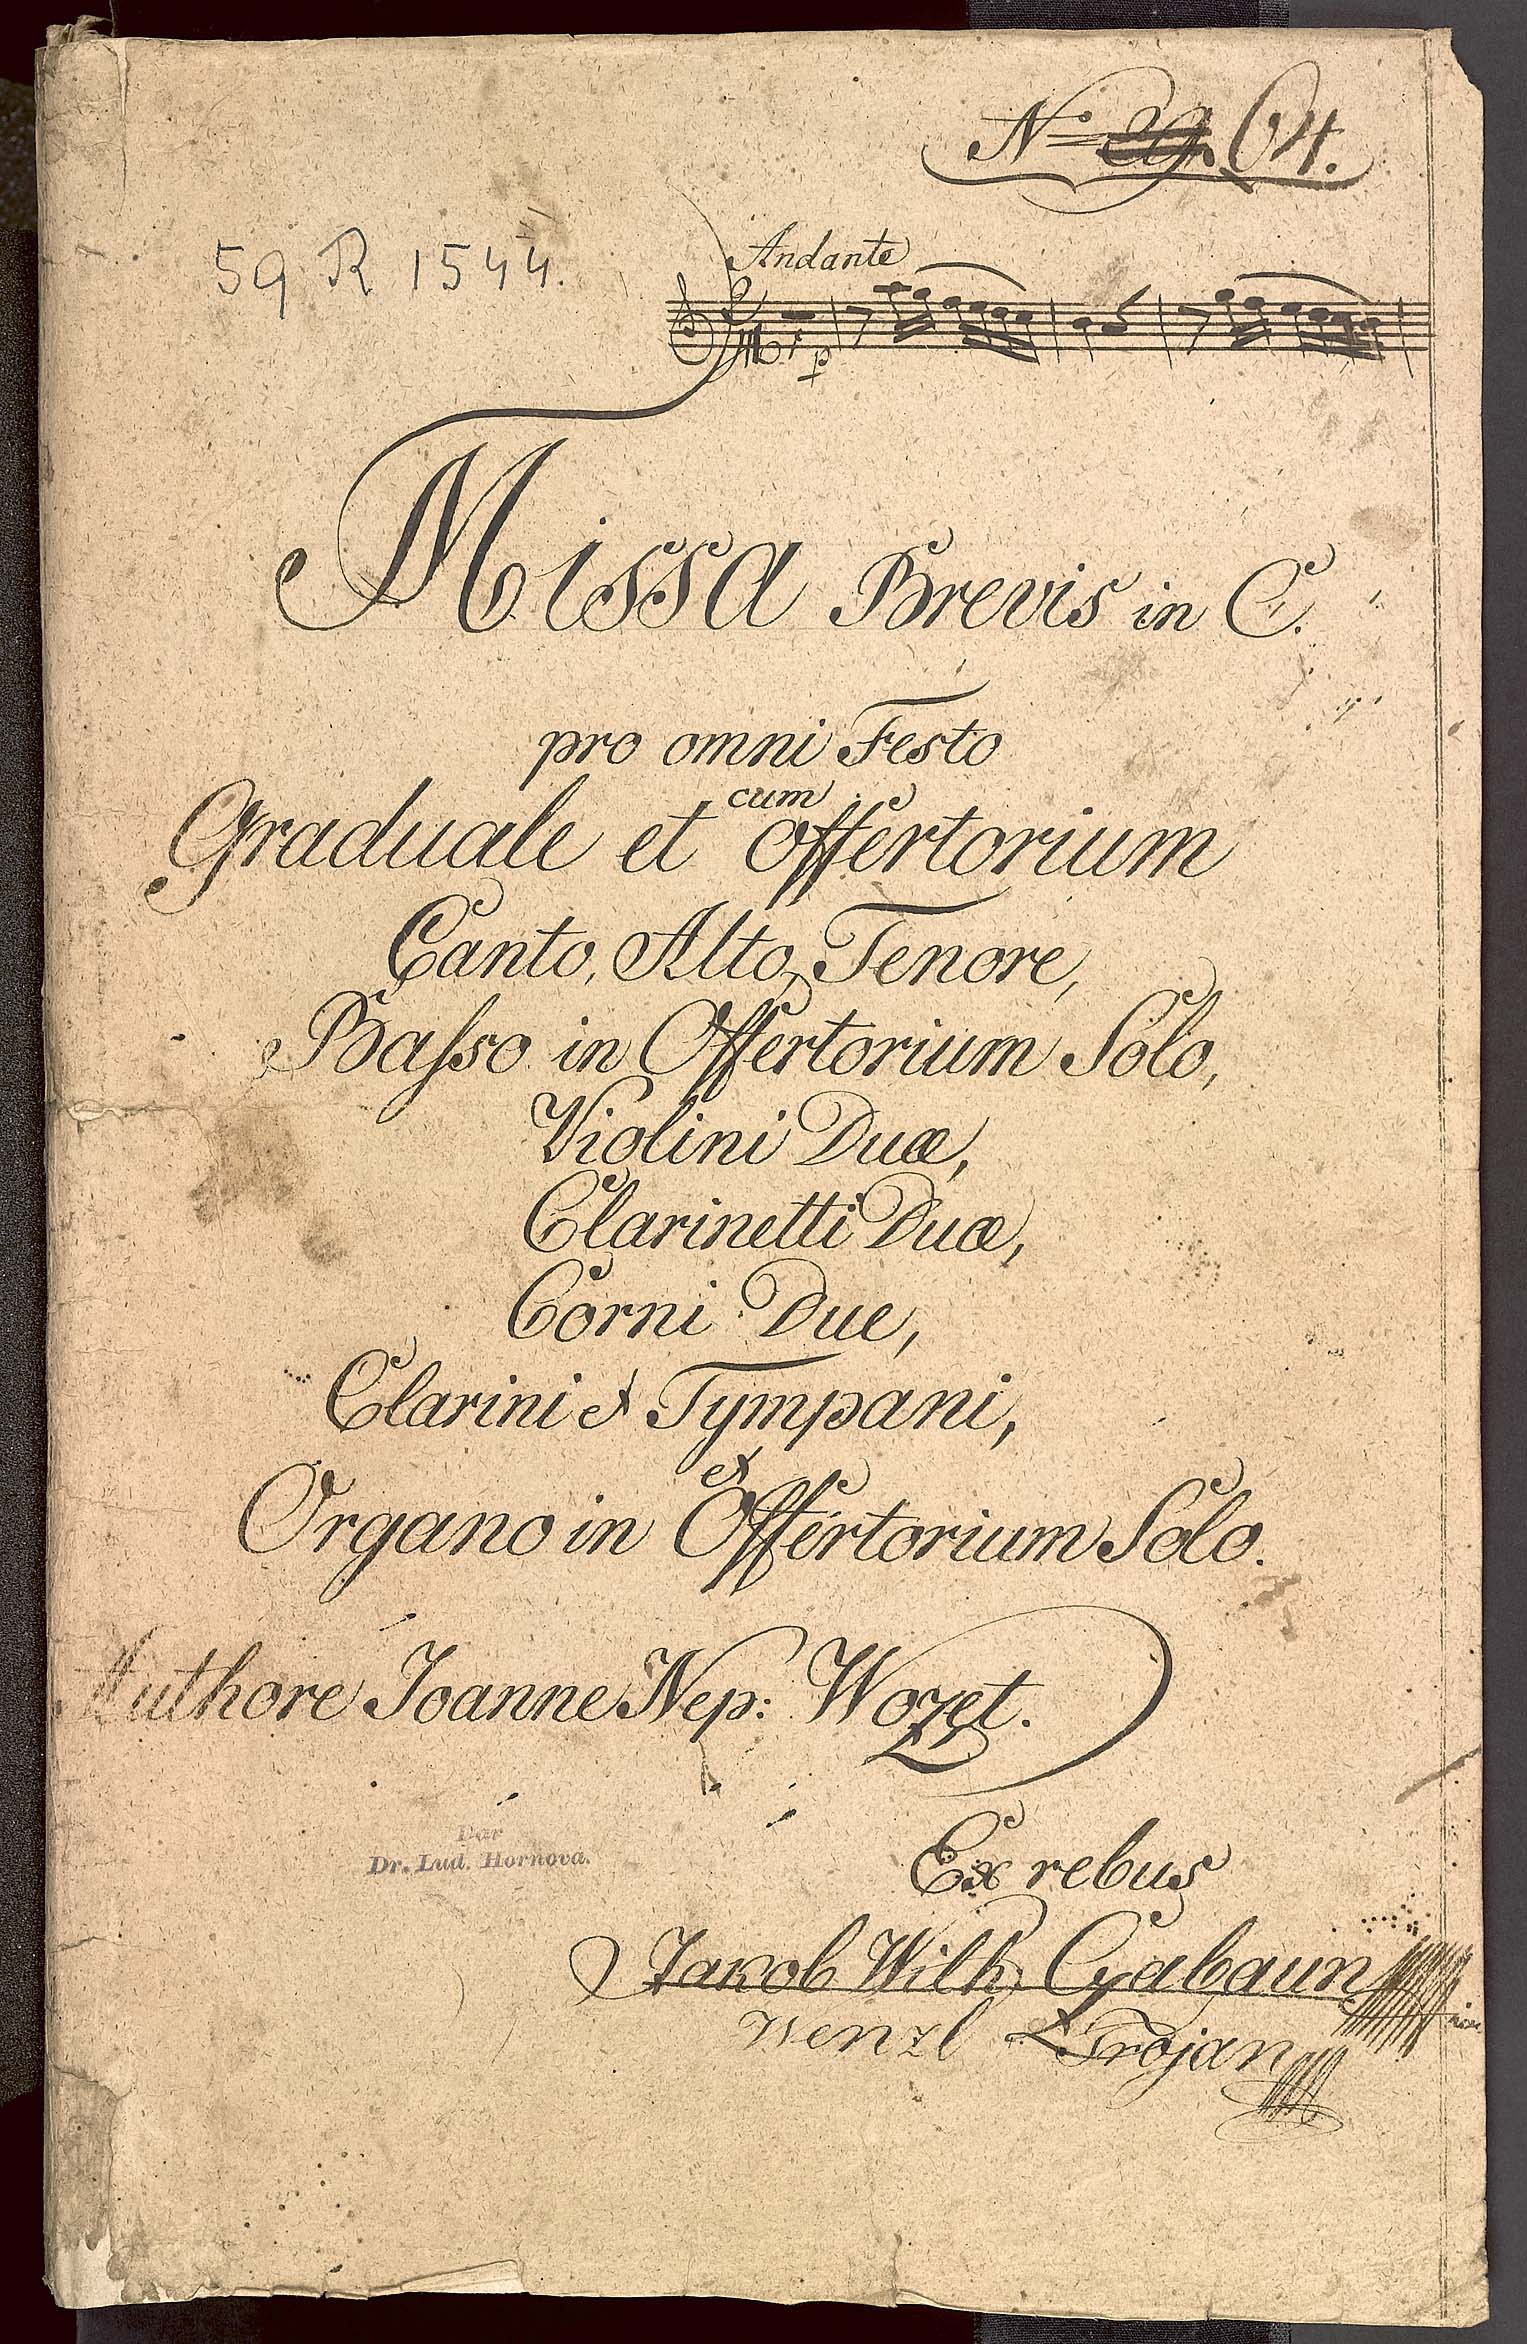 No 29. 64.
59 R 1544.
Andante
p
Missa Brevis in C.
pro omni Festo
cum
Graduale et Offertorium
Canto, Alto, Tenore,
Basso in Offertorium Solo,
Violini Duæ,
Clarinetti Duæ,
Corni Due,
Clarini et Tympani,
et
Organo in Offertorium Solo.
Authore Joanne Nep: Wozet.
Dar
Dr. Lud. Hornova.
Ex rebus
Jakob Wilh.
Wenzl Trojan